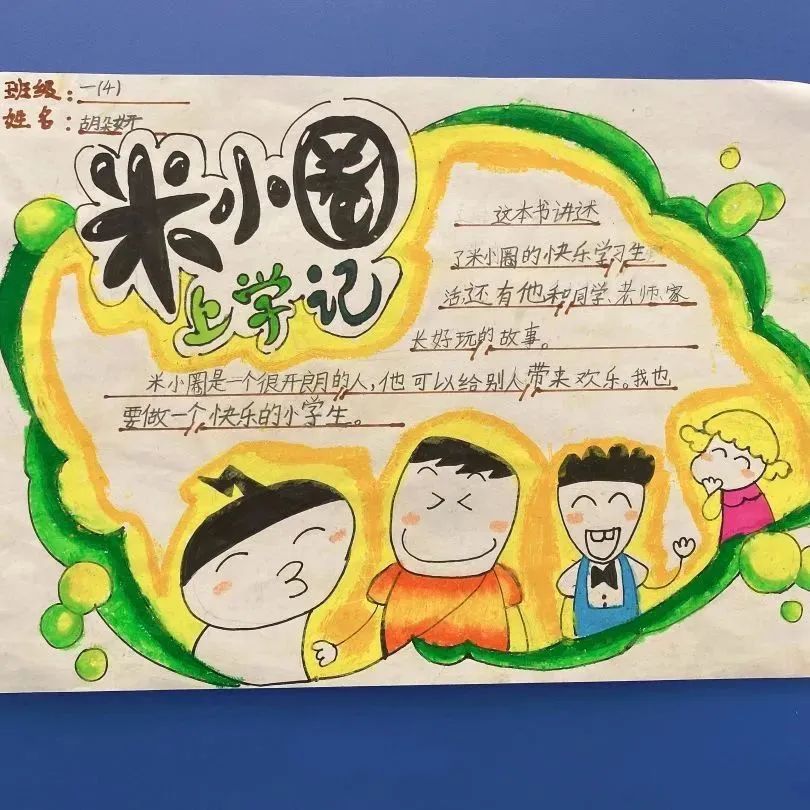 班级：一(4)
姓名：胡朵妍
米小圈
上学记
这本书讲述
了米小圈的快乐学习生
活,还有他和同学、老师、家
长好玩的故事。
米小圈是一个很开朗的人,他可以给别人带来欢乐。我也
要做一个快乐的小学生。